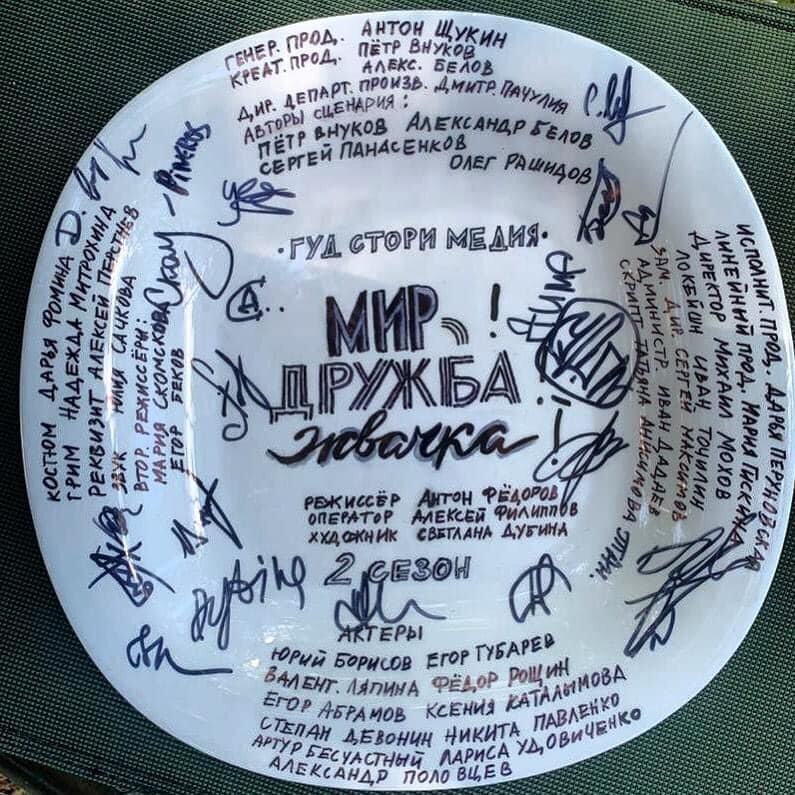 ГЕНЕР. ПРОД. АНТОН ЩУКИН
КРЕАТ. ПРОД. ПЁТР ВНУКОВ
АЛЕКС. БЕЛОВ
ДИР. ДЕПАРТ. ПРОИЗВ. ДМИТР. ПАЧУЛИЯ
АВТОРЫ СЦЕНАРИЯ:
ПЁТР ВНУКОВ АЛЕКСАНДР БЕЛОВ
СЕРГЕЙ ПАНАСЕНКОВ
ОЛЕГ РАШИДОВ
·ГУД СТОРИ МЕДИЯ·
МИР!
ДРУЖБА!
жвачка!
РЕЖИССЁР АНТОН ФЁДОРОВ
ОПЕРАТОР АЛЕКСЕЙ ФИЛИППОВ
ХУДОЖНИК СВЕТЛАНА ДУБИНА
2 СЕЗОН
АКТЕРЫ
ЮРИЙ БОРИСОВ ЕГОР ГУБАРЕВ
ВАЛЕНТ. ЛЯПИНА ФЁДОР РОЩИН
ЕГОР АБРАМОВ КСЕНИЯ КАТАЛЫМОВА
СТЕПАН ДЕВОНИН НИКИТА ПАВЛЕНКО
АРТУР БЕСЧАСТНЫЙ ЛАРИСА УДОВИЧЕНКО
АЛЕКСАНДР ПОЛОВЦЕВ
КОСТЮМ ДАРЬЯ ФОМИНА
ГРИМ НАДЕЖДА МИТРОХИНА
РЕКВИЗИТ АЛЕКСЕЙ
ЗВУК ЮЛИЯ САЧКОВА
ВТОР. РЕЖИССЁРЫ:
МАРИЯ СКОМСКОВА
ЕГОР БЕКОВ
ИСПОЛНИТ. ПРОД. ДАРЬЯ ПЕРУНОВСКАЯ
ЛИНЕЙНЫЙ ПРОД. МАРИЯ ГИСКИНА
ДИРЕКТОР МИХАИЛ МОХОВ
ЛОКЕЙШН ИВАН ТОЧИЛИН
ЗАМ. ДИР. СЕРГЕЙ МАКСИМОВ
АДМИНИСТР. ИВАН ДАДАЕВ
СКРИПТ ТАТЬЯНА АНИСИМОВА